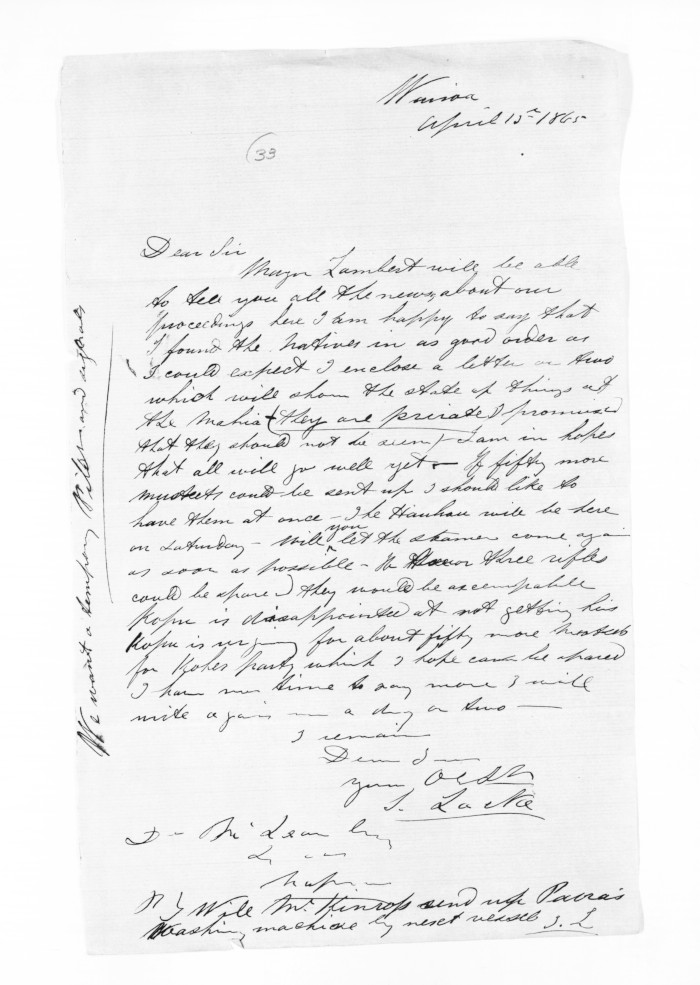 Wairoa
April 15th 1865
(33
Dear Sir
Major Lambert will be able
to tell you all the news about our
proceedings here I am happy to say that
I found the natives in as good order as
I could expect I enclose a letter or two
which will show the state of things at
the Mahia (they are private I promised
that they should not be seen) I am in hopes
that all will go well yet - If fifty more
muskets could be sent up I should like to
have them at once - The Hauhau will be here
on Saturday - Will you let the steamer come again
as soon as possible - If two or three rifles
could be spared they would be acceptable
Kopu is disappointed at not getting his
Kopu is urging for about fifty more muskets
for party which I hope can be spared
I have no time to say more I will
write again in a day or two —
I remain
Dear Sir
your
S. Locke
D McLean Esq
Napier
P S Will Mr. Kinross send up
washing machine by next vessel S. L
We want a tempory and